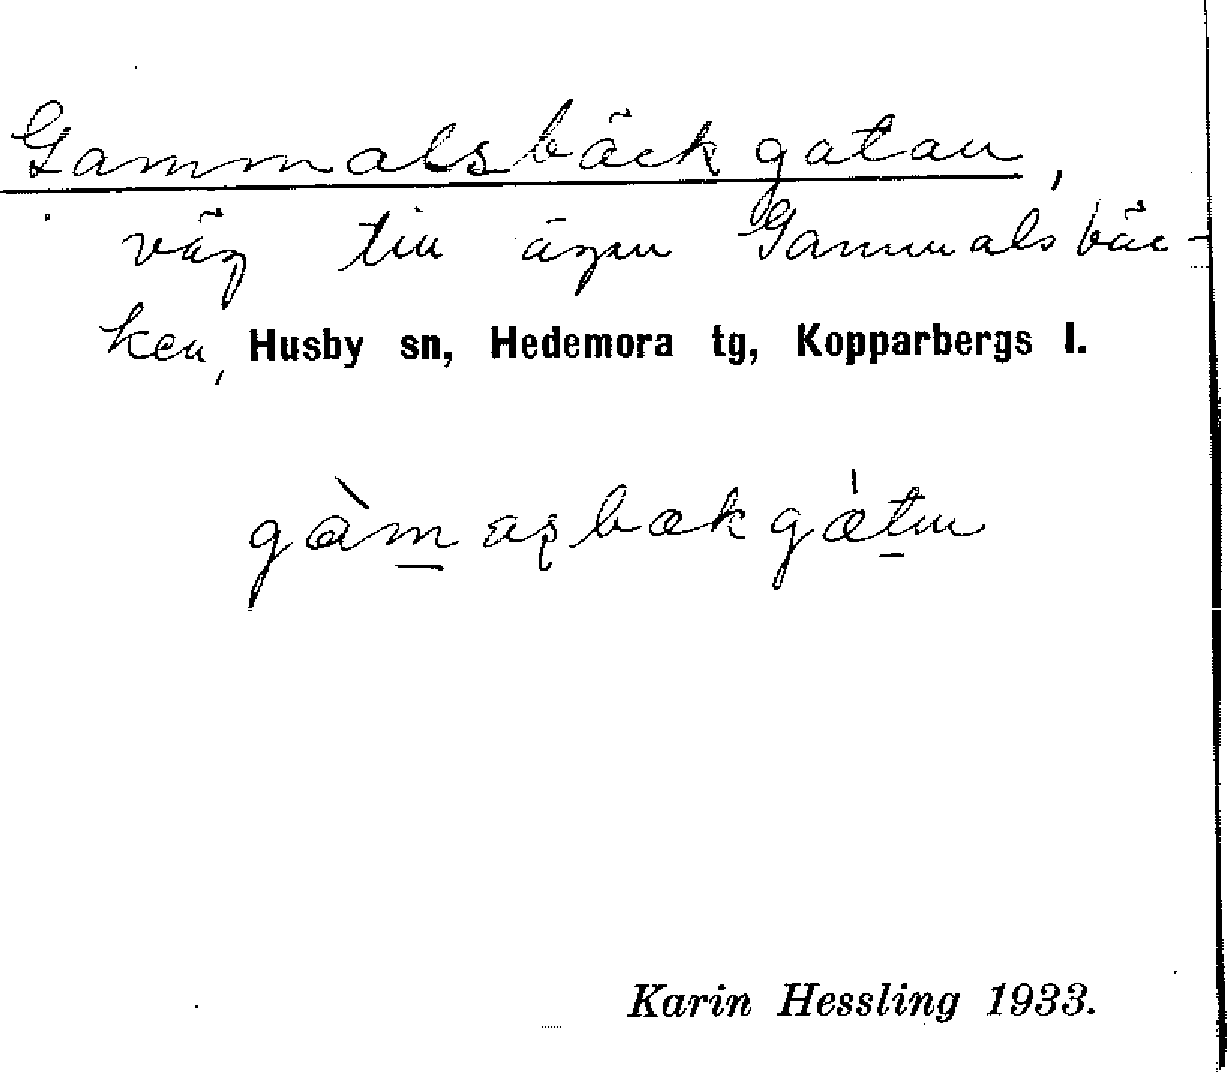 Gammalsbäckgatan,
väg till ägan Gammalsbäc-
ken, Husby sn, Hedemora tg, Kopparbergs l.
Karin Hessling 1933.